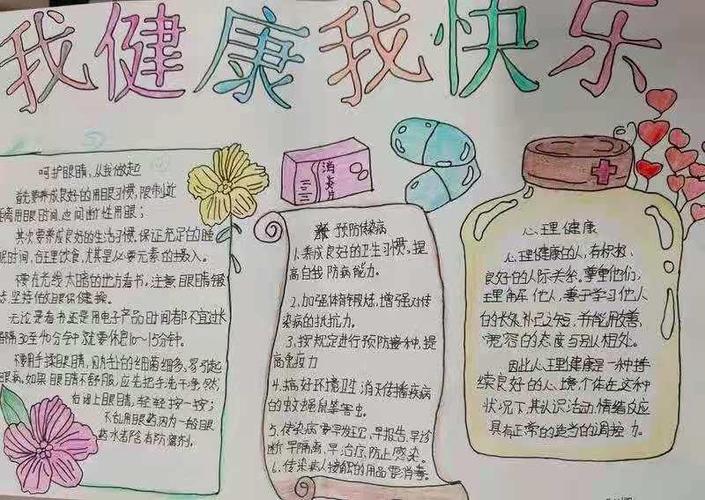 我健康我快乐
呵护眼睛,从我做起
首先要养成良好的用眼习惯,限制近
距离用眼时间,定间断性用眼;
其次要养成良好的生活习惯,保证充足的睡
眠时间,合理饮食,尤其是必要元素的摄入。
不要在光线太暗的地方看书,注意眼睛锻
坚持做眼保健操。
无论是看书还是用电子产品时间都不宜过长
隔30至40分钟就要休息10~15分钟。
不要用手揉眼睛,因为手上的细菌很多,容易引起
眼病,如果眼睛不舒服,应先把手洗干净,然
后闭上眼睛,轻轻按一按;
不乱用眼药因为一般眼
药水都含有防腐剂。
消炎片
预防传染病
1.养成良好的卫生习惯,提
高自我防病能力。
2.加强体育锻炼,增强对传
染病的抵抗力。
3.按规定进行预防接种,提
高免疫力
4.搞好环境卫生消灭传播疾病
的蚊蝇鼠蟑害虫。
5.传染病要早发现,早报告,早诊
断早隔离,早治疗,防止感染。
6.传染病人接触的用品要消毒。
心理健康
心理健康的人,有积极、
良好的人际关系。尊重他们,
理解他人,善于学习他人
的长处补己之短,并能用友善,
宽容的态度与别人相处。
因此心理健康是一种持
续良好的心境个体在这种
状况下,其认识活动,情绪反应
具有正常的适当的调控力。